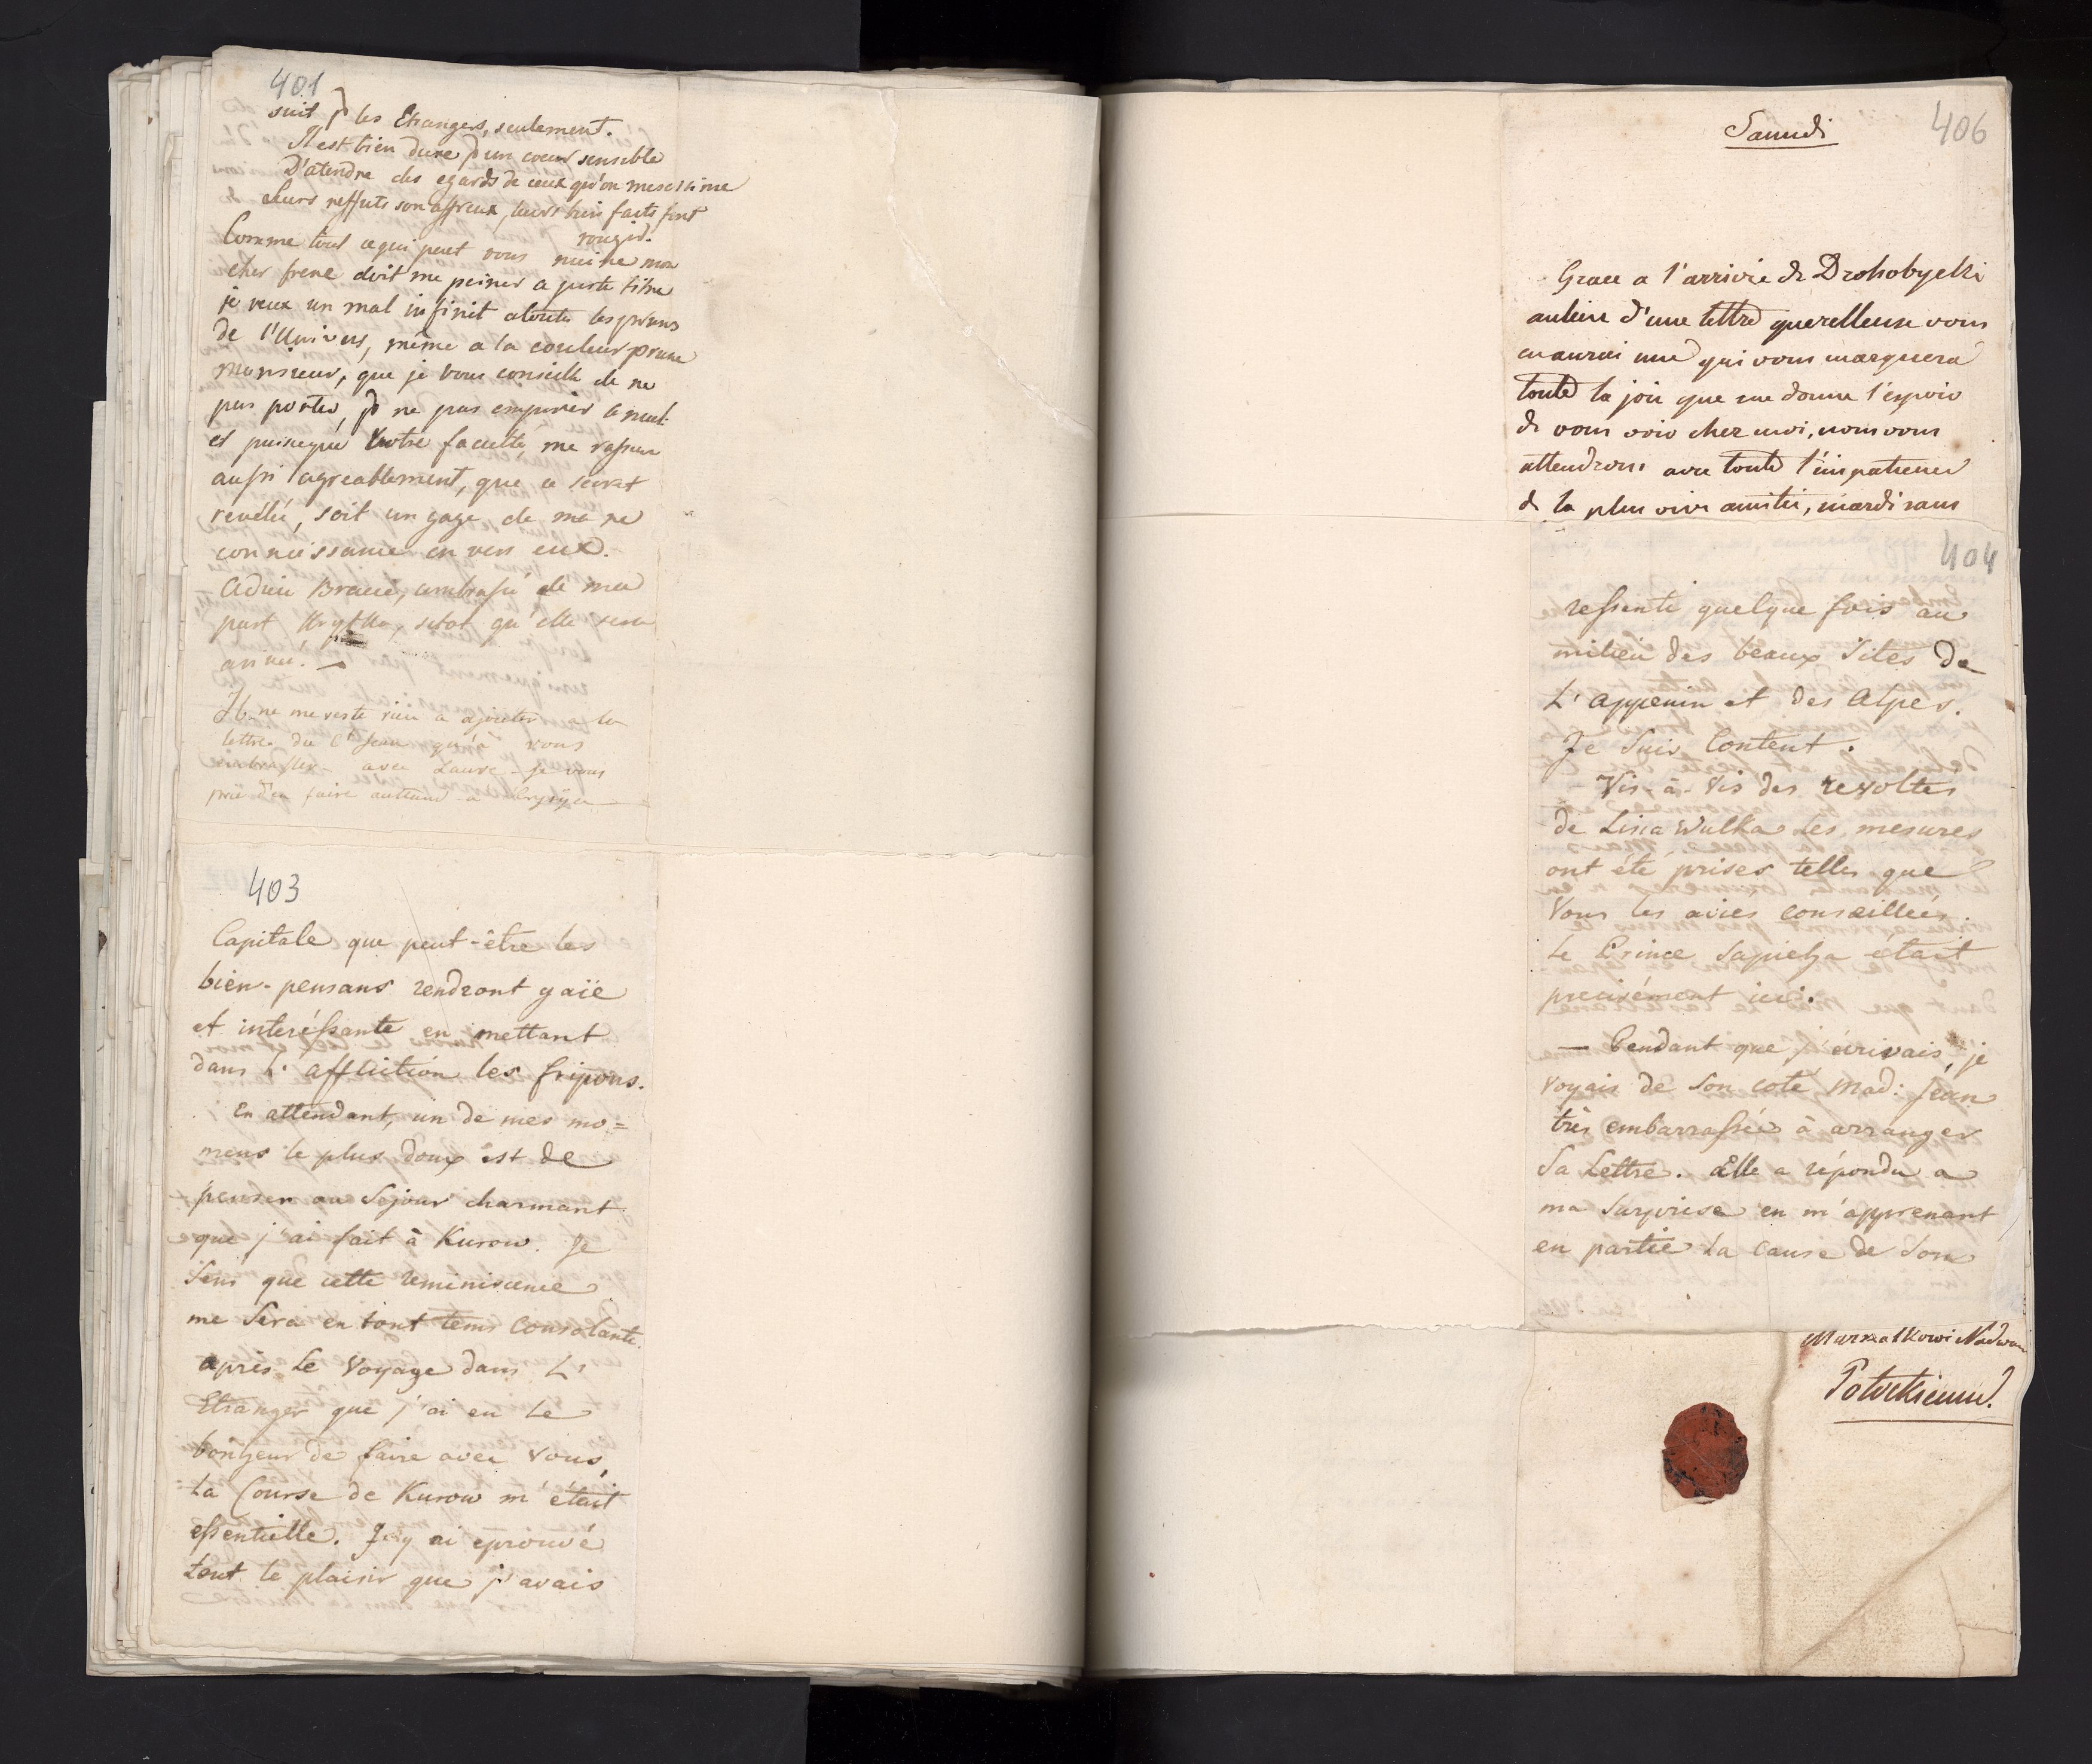 401
suit p les Etrangers, seulement.
Il est bien dure p un coeur sensible
D'atendre des egards de ceux qu'on mesestime
Leurs reffuts son affreux, leurs bien faits font
rougir.
Comme tout ce qui peut vous nuire mon
cher frere doit me peiner a juste titre
je veux un mal infinit a toutes les prunes
de l'Univers, même a la couleur prune
monsieur, que je vous conseille de ne
pas porter, p ne pas empirer le mal.
et puisque Votre faculté, me rassure
aussi agreablement, que ce secret
revélé, soit un gage de ma re
connoissance en vers eux.
Adieu Braciè, embrassé de ma
part Krysska, sitot qu'elle sera
arriveé.
Il ne me reste rien a ajouter la
lettre du Cte Jean qu'à vous
embrasser avec Laure - je vous
prie d'en faire auttant a
403
Capitale que peut-être les
bien-pensans rendront gaïe
et interéssante en mettant
dans L'affliction les fripons.
En attendant, un de mes mo=
mens le plus doux est de
penser au Sejour charmant
que j'ai fait à Kurow. Je
Sens que cette reminiscence
me Sera en tout tems Consolante.
après Le Voyage dans L'
Etranger que j'ai eu Le
bonheur de faire avec Vous,
La Course de Kurow m'était
essentielle. J'ey ai eprouvé
tout le plaisir que j'avais
406
Samedi
Grace a l'arrivée de Drohobycki
aulieu d'une lettre querelleuse vous
en aurai une qui vous marquera
toute la joie que me donne l'espoir
de vous voir chez moi, nous vous
attendrons avec toute l'impatience
de la plus vive amitié, mardi sans
404
ressenti quelque fois au
milieu des beaux Sites de
L'appenin et des Alpes.
Je Suis Content.
Vis-à-Vis des revoltes
de Lisia Wulka Les mesures
ont été prises telles que
Vous les aviés conseillées.
Le Prince Sapieha était
precisément ici.
— Pendant que j'écrivais, je
voyais de Son coté Mad: Jean
très embarrassée à arranger
Sa Lettre. Elle a répondu a
ma Surprise en m'apprenant
en partie La cause de Son
Marszalkowi Nadwor
Potockiemu.